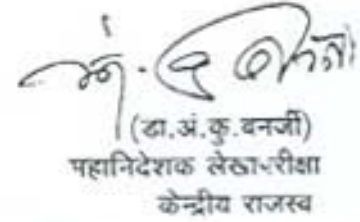 (डा.अं.कु.बनर्जी)
महानिदेशक लेखापरीक्षा
केन्द्रीय राजस्व